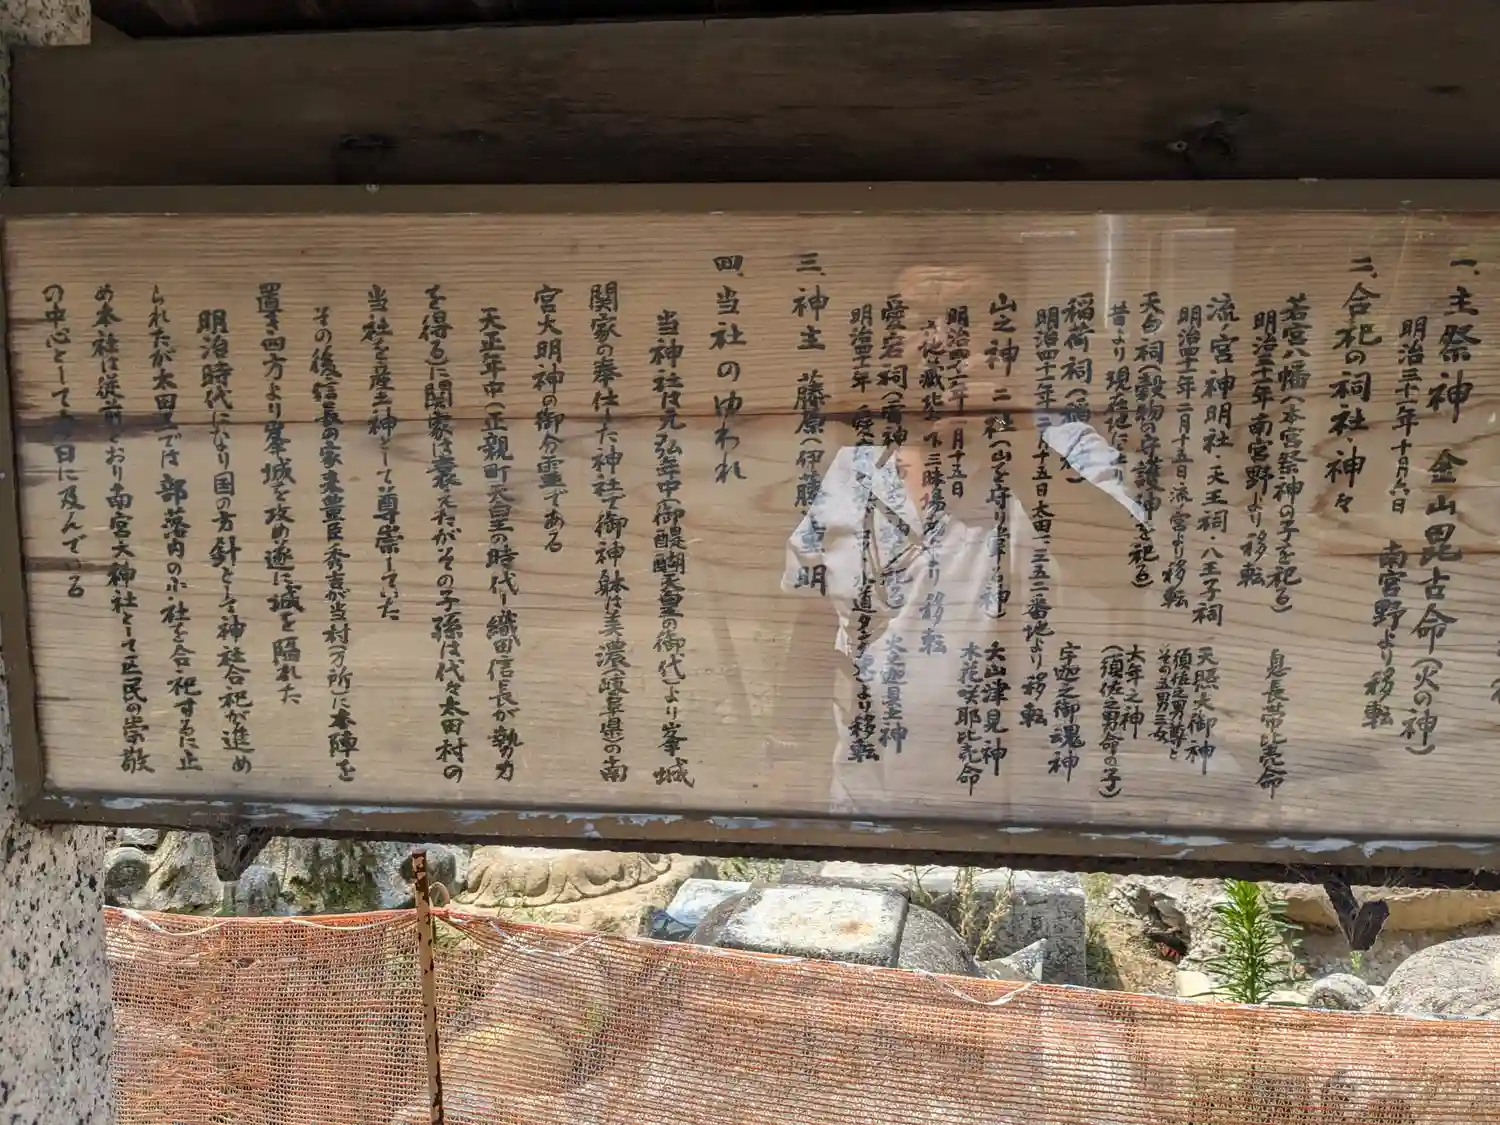 一、主祭神 金山毘古命(火の神)
明治三十一年十月六日 南宮野より移転
二、合祀の祠社、神々
若宮八幡(本宮祭神の子を祀る) 息長帯比売命
明治三十一年南宮野より移転
流ノ宮神明社・天王祠・八王子祠 天照大御神 須佐之男尊と その五男三女
明治四十一年二月十五日流ノ宮より移転
天白祠(穀物の守護神を祀る) 大年之神
昔より現在地にあり (須佐之男命の子)
稲荷祠(稲 宇迦之御魂神
明治四十一年二月十五日太田一、三五二番地より移転
山之神 二社(山を守り 神) 大山津見神
明治四十一年 月十五日 木花咲耶比売命
下三昧場 より移転
愛宕祠(雷神 祀る) 火之迦具土神
明治四十一年 水道タンク より移転
三、神主 藤原(伊藤)重明
四、当社のゆわれ
当神社は元弘年中(御醍醐天皇の御代)より峯城
関家の奉仕した神社で御神躰は美濃(岐阜県)の南
宮大明神の御分霊である
天正年中(正親町天皇の時代)織田信長が勢力
を得るに関家は衰えたがその子孫は代々太田村の
当社を産土神として尊崇していた
その後信長の家来豊臣秀吉が当村(万所)に本陣を
置き四方より峯城を攻め遂に城を陥れた
明治時代になり国の方針として神社合祀が進め
られたが太田 では部落内の小社を合祀するに止
め本社は従前どおり南宮大神社として区民の崇敬
の中心として今日に及んでいる